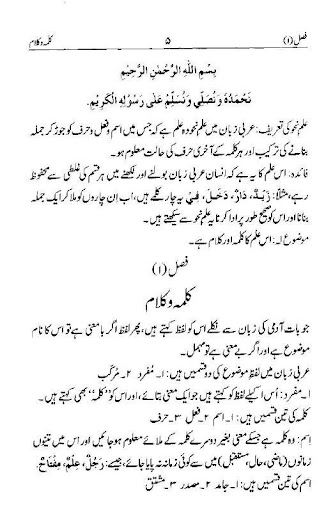 فصل (۱) ۵ کلمہ وکلام
بِسْمِ اللهِ الرَّحْمٰنِ الرَّحِيْمِ
نَحْمَدُهٗ وَنُصَلِّيْ وَنُسَلِّمُ عَلٰى رَسُوْلِهِ الْكَرِيْمِ.
علم نحو کی تعریف: عربی زبان میں علم نحو وہ علم ہے کہ جس میں اسم وفعل وحرف کو جوڑ کر جملہ
بنانے کی ترکیب اور ہر کلمہ کے آخری حرف کی حالت معلوم ہو۔
فائدہ: اس علم کا یہ ہے کہ انسان عربی زبان بولنے اور لکھنے میں ہر قسم کی غلطی سے محفوظ
رہے، مثلاً: زَيْدٌ، دَارٌ، دَخَلَ، فِيْ یہ چار کلمے ہیں، اب ان چاروں کو ملا کر ایک جملہ
بنانا اور اس کو صحیح طور پر ادا کرنا یہ علم نحو سے سیکھتے ہیں۔
موضوع: اس علم کا کلمہ اور کلام ہے۔
فصل (۱)
کلمہ وکلام
جو بات آدمی کی زبان سے نکلے اس کو لفظ کہتے ہیں، پھر لفظ اگر بامعنی ہے تو اس کا نام
موضوع ہے اور اگر بے معنی ہے تو مہمل۔
عربی زبان میں لفظ موضوع کی دو قسمیں ہیں: ۱۔ مُفرد ۲۔ مُرکّب
۱۔ مفرد: اُس اکیلے لفظ کو کہتے ہیں جو ایک معنی بتائے، اور اس کو "کلمہ" بھی کہتے ہیں۔
کلمہ کی تین قسمیں ہیں: ۱۔ اسم ۲۔ فعل ۳۔ حرف
اِسْم: وہ کلمہ ہے جسکے معنی بغیر دوسرے کلمہ کے ملائے معلوم ہو جائیں اور اس میں تینوں
زمانوں (ماضی، حال، مستقبل) میں سے کوئی زمانہ نہ پایا جائے، جیسے: رَجُلٌ، عِلْمٌ، مِفْتَاحٌ.
اسم کی تین قسمیں ہیں: ۱۔ جامد ۲۔ مصدر ۳۔ مشتق